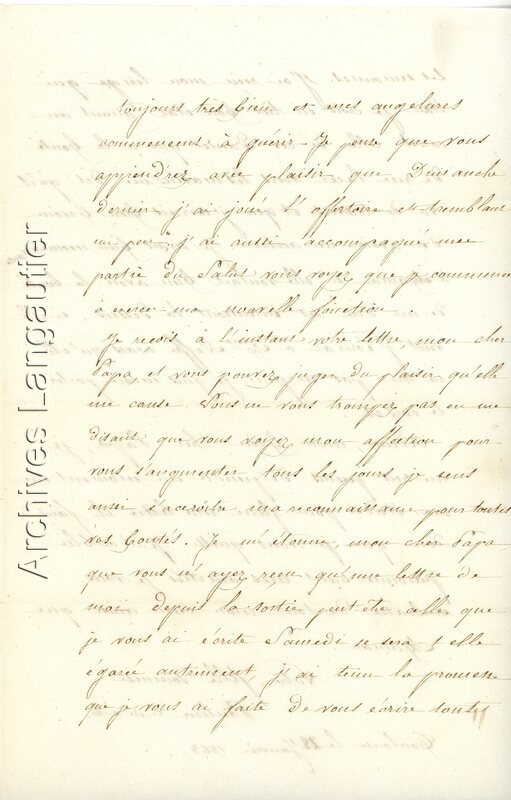 toujours très bien et mes angelures
commencent à guérir. Je pense que vous
apprendrez avec plaisir que Dimanche
dernier j'ai joué l'offertoire et tremblant
un peu, j'ai aussi accompagné une
partie du Salut vous voyez que je commence
à exercer ma nouvelle fonction.
Je reçois à l'instant votre lettre mon cher
Papa, et vous pouvez juger du plaisir qu'elle
me cause. Vous ne vous trompez pas en me
disant que vous voyez mon affection pour
vous s'augmenter tous les jours, je sens
aussi s'accroître ma reconnaissance pour toutes
vos bontés. Je m'étonne, mon cher Papa,
que vous n'ayez reçu qu'une lettre de
moi depuis la sortie peut être celle que
je vous ai écrite Samedi se sera t elle
égarée autrement j'ai tenu la promesse
que je vous ai faite de vous écrire toutes
Archives Langautier